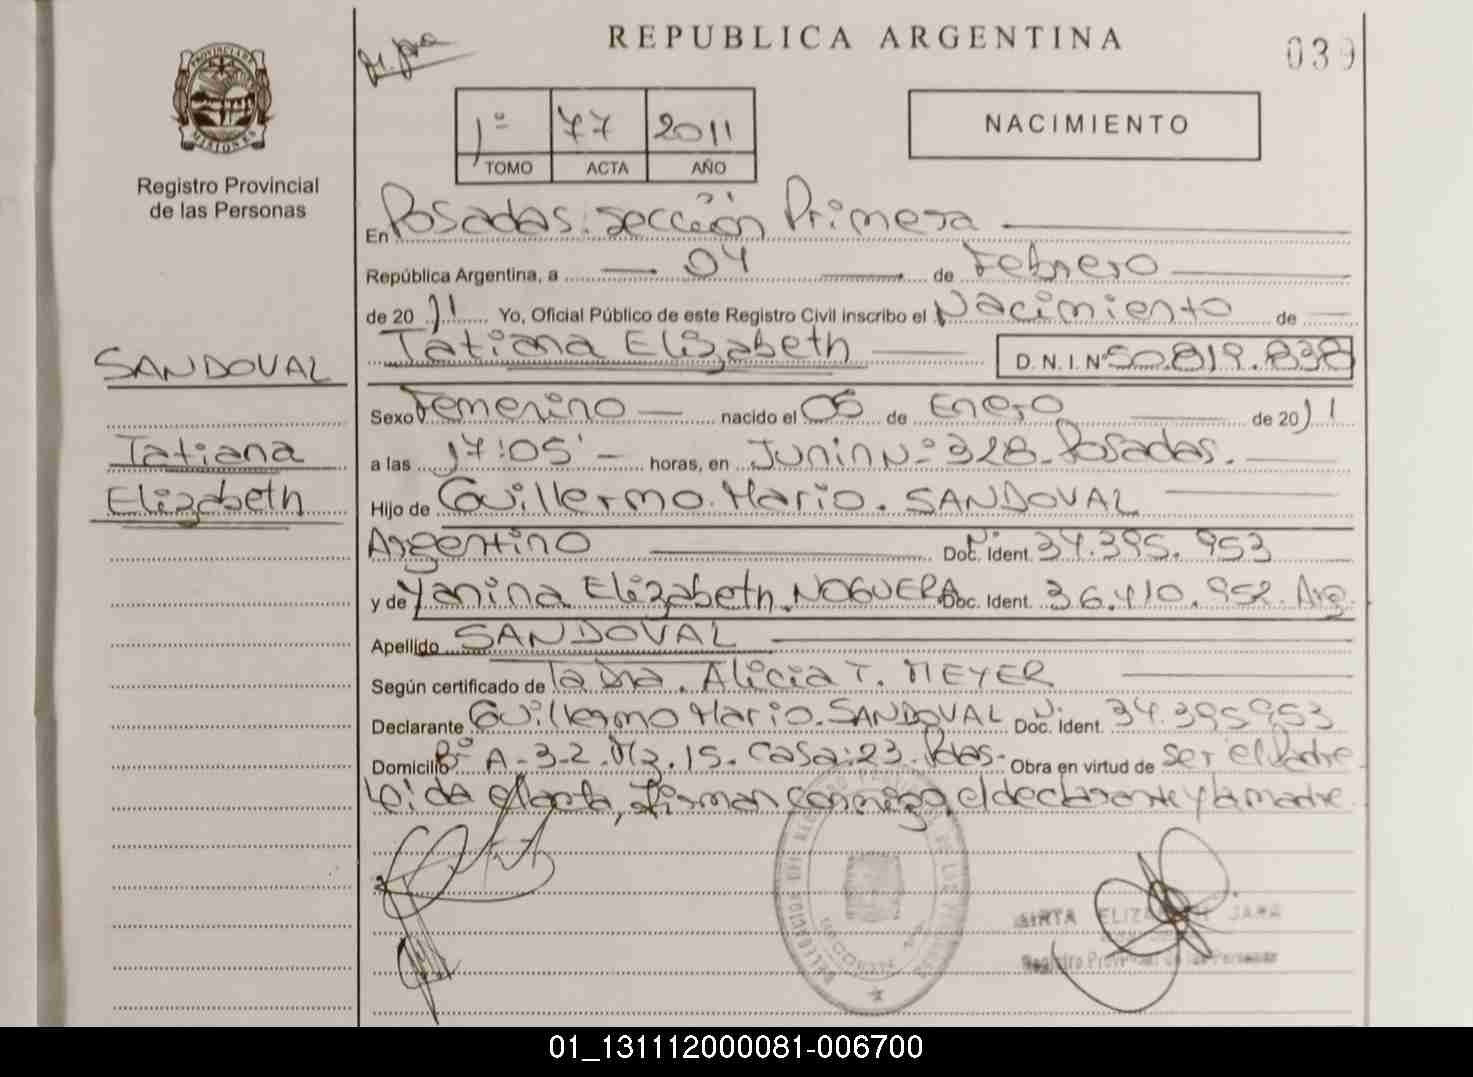 REPUBLICA ARGENTINA
039
PROVINCIA DE
MISIONES
Registro Provincial
de las Personas
1º 77 2011
TOMO ACTA AÑO
NACIMIENTO
En Posadas. sección Primera
República Argentina, a 04 de Febrero
de 20 11 Yo, Oficial Público de este Registro Civil inscribo el Nacimiento de
Tatiana Elizabeth D.N.I.Nº 50.819.838
SANDOVAL
Tatiana
Elizabeth
Sexo Femenino nacido el 05 de Enero de 20 11
a las 17:05' horas, en Junin Nº 328. Posadas.
Hijo de Guillermo Mario. SANDOVAL
Argentino Doc. Ident. 34.395.953
y de Yanina Elizabeth. NOGUERA Doc. Ident. 36.410.952. Arg.
Apellido SANDOVAL
Según certificado de la Dra. Alicia T. MEYER
Declarante Guillermo Mario. SANDOVAL Doc. Ident. 34.395953
Domicilio Bº A-3-2. Mz. 15. Casa: 23. Pdas. Obra en virtud de ser el Padre
Leida el Acta, firman conmigo, el declarante y la madre
MIRTA ELIZABETH JARA
Registro Provincial de las Personas
01_131112000081-006700